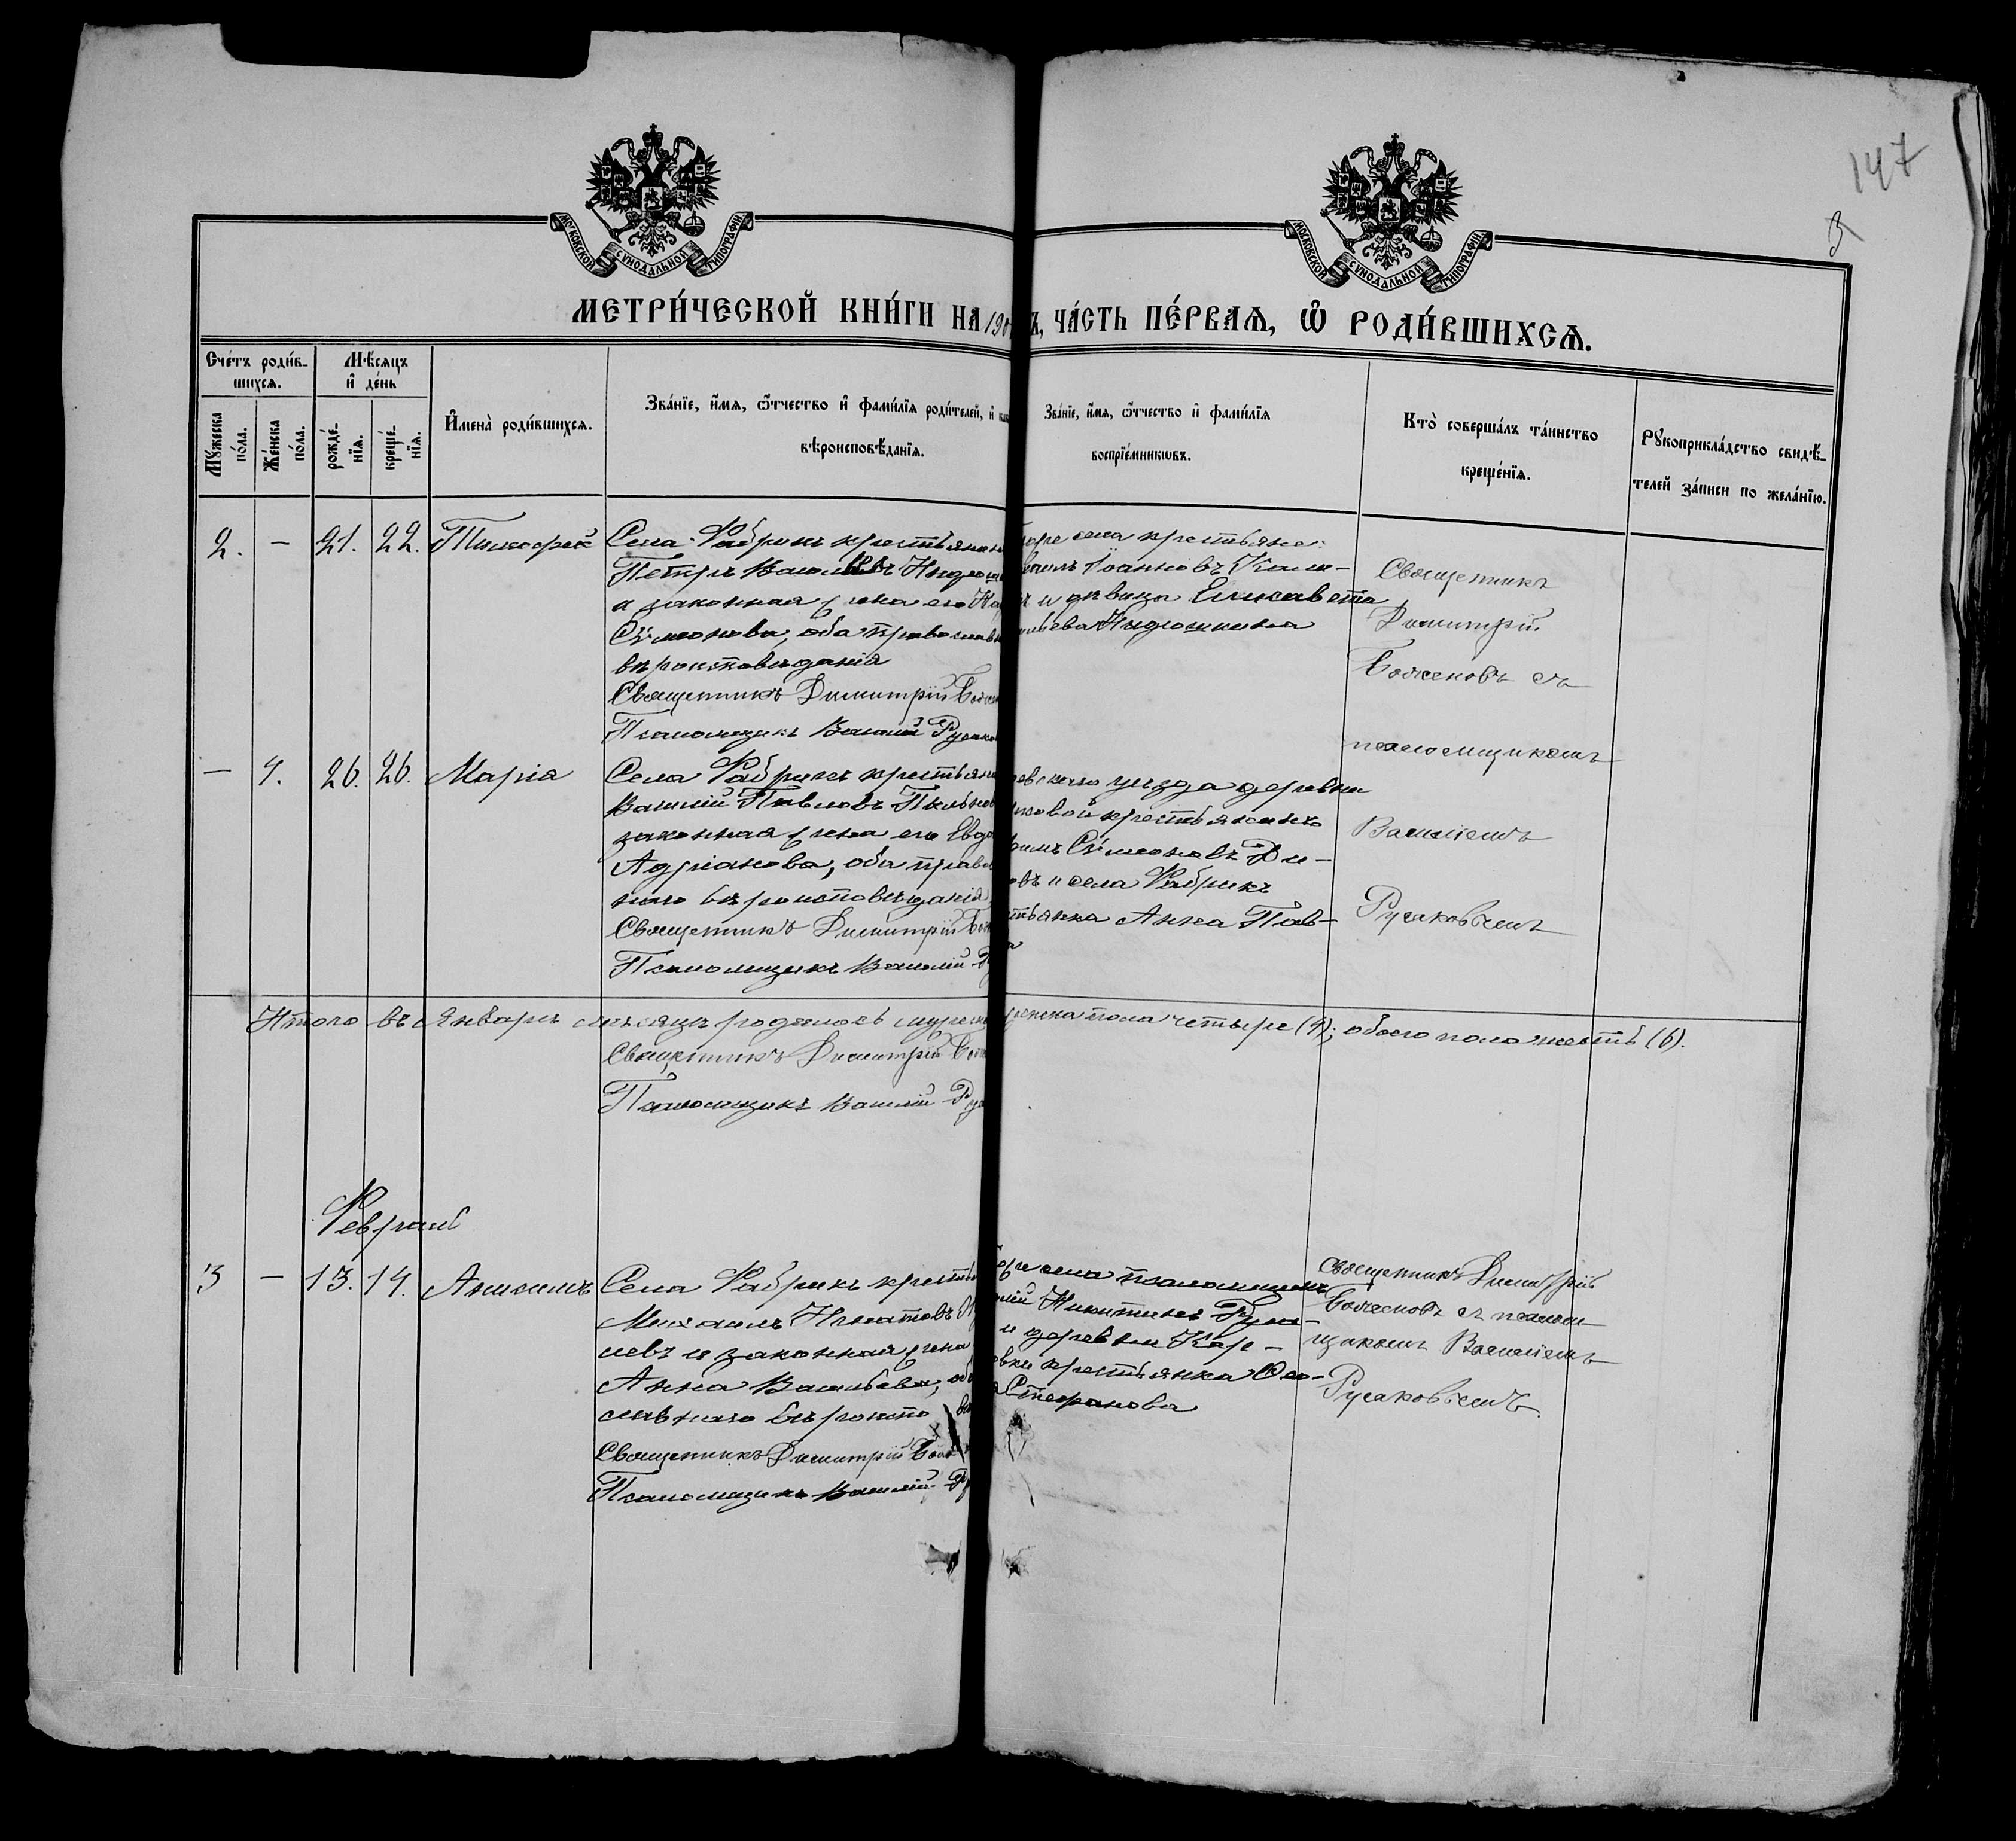 147
3
МОСКОВСКОЙ СѴНОДАЛЬНОЙ ТИПОГРАФІИ
МОСКОВСКОЙ СѴНОДАЛЬНОЙ ТИПОГРАФІИ
МЕТРИ́ЧЕСКОЙ КНИ́ГИ НА 190 Ъ, ЧА́СТЬ ПЕ́РВАѦ, Ѽ РОДИ́ВШИХСѦ.
Сче́тъ роди́в-
шихсѧ.
Мѣ́сяцъ
и҆ де́нь
Мꙋ́жеска по́ла.
Же́нска по́ла.
рожде́-нїѧ.
креще́-нїѧ.
И҆мена̀ роди́вшихсѧ.
Зва́нїе, и҆́мѧ, ѻ҆́тчество и҆ фами́лїѧ роди́телей, и҆
вѣроисповѣ́данїѧ.
Зва́нїе, и҆́мѧ, ѻ҆́тчество и҆ фами́лїѧ
воспрїе́мникѡвъ.
Кто̀ соверша́лъ та́инство
креще́нїѧ.
Рꙋкоприкла́дство свидѣ́-
телей за́писи по жела́нїю.
2. — 21. 22. Тимофей
Села Фабрикъ крестьянин
Петръ Васильевъ
и законная жена его
Сѵмеонова, оба православн
вѣроисповѣданія
Священникъ Димитрій Божен
Псаломщикъ Василій Русако
села крестьяне:
Іоанновъ Калм-
и дѣвица Елисавета
Священникъ
Димитрій
Боженовъ съ
псаломщикомъ
Василіемъ
Русаковымъ
— 4. 26. 26. Марія
Села Фабрикъ крестьянин
Василій Павловъ
законная жена его Евдо
Адріанова, оба правос
наго вѣроисповѣданія
Священникъ Димитрій Бож
Псаломщикъ Василій Р
уѣзда деревни
крестьянинъ
Сѵмеоновъ Ди-
въ и села Фабрикъ
тьянка Анна Пав-
а
Итого въ Январѣ мѣсяцѣ родилось мужеск женска пола четыре (4); обоего пола шесть (6).
Священникъ Димитрій Бож
Псаломщикъ Василій Рус
Февраль
3 — 13. 14. Анисимъ
Села Фабрикъ крестья
Михаилъ Игнатовъ
левъ и законная жена
Анна Васильева, об
славнаго вѣроиспо
Священникъ Димитрій Бож
Псаломщикъ Василій Р
села псаломщикъ
Никитинъ Руса-
и деревни Кар-
овки крестьянка Ѳео-
Стефанова
Священникъ Димитрій
Боженовъ съ псалом
щикомъ Василіемъ
Русаковымъ.